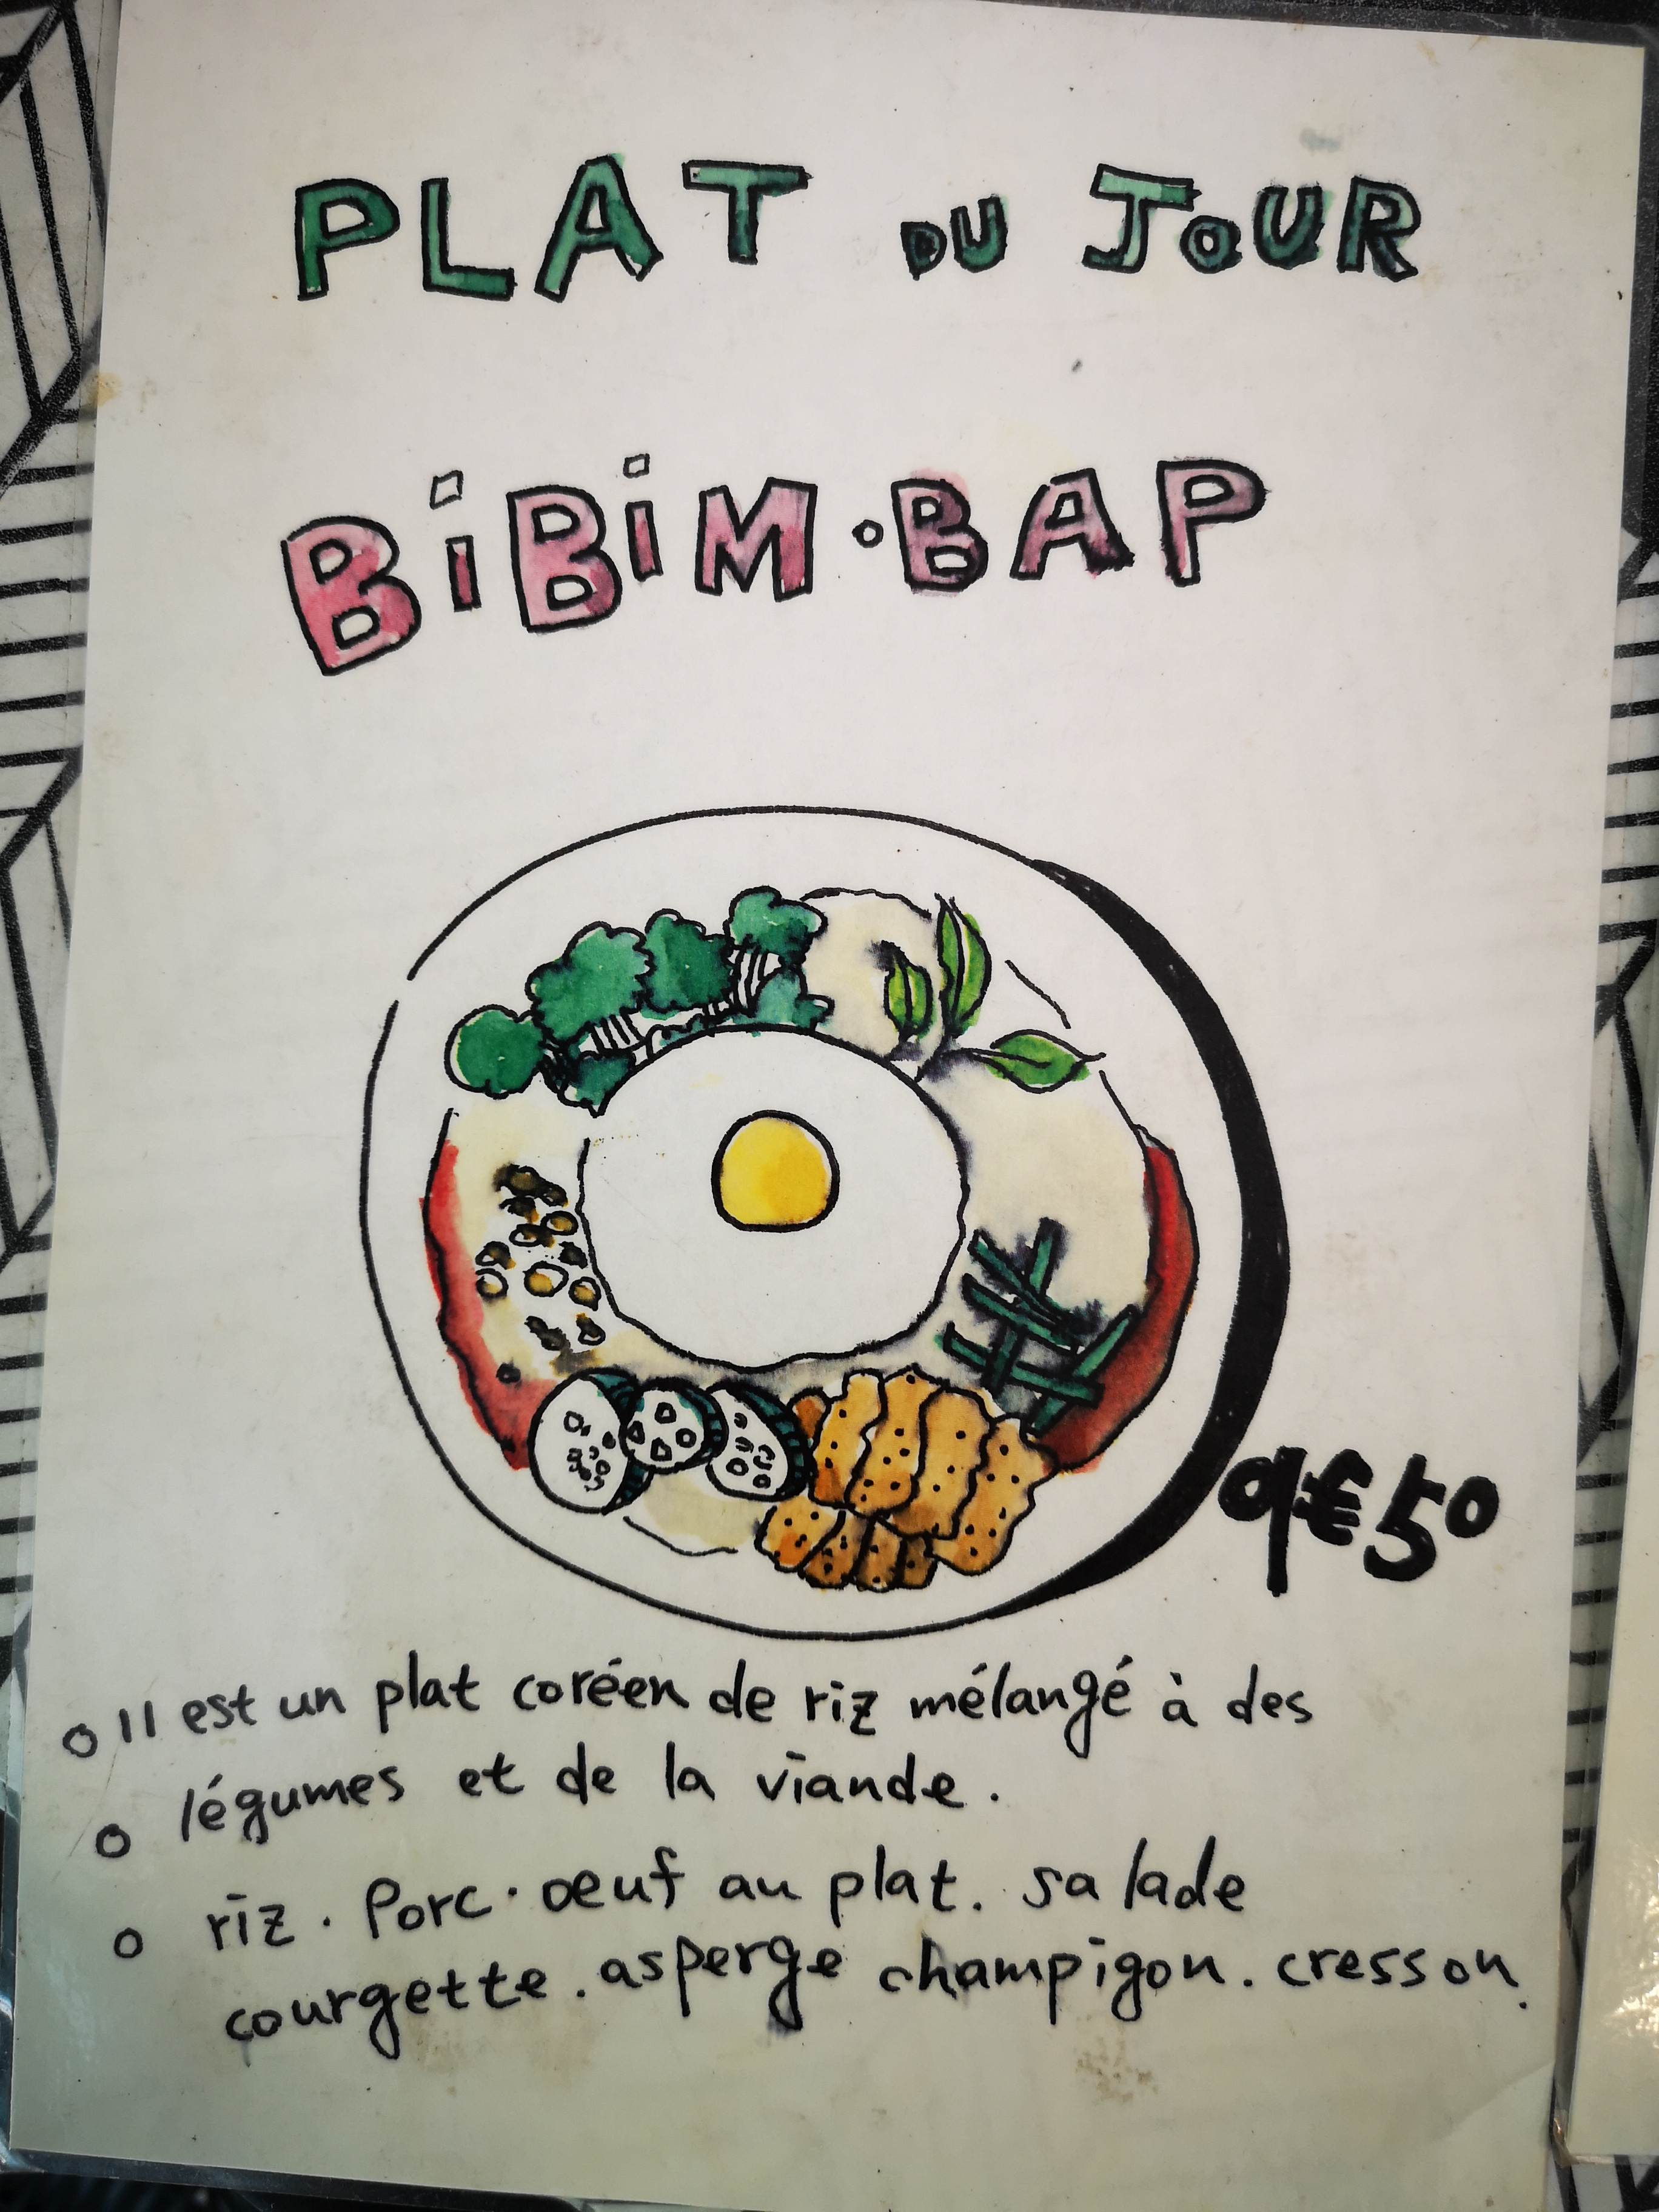 PLAT DU JOUR
BiBiM·BAP
9€50
o Il est un plat coréen de riz mélangé à des
o légumes et de la viande.
o riz. Porc. oeuf au plat. salade
courgette. asperge champigon. cresson.